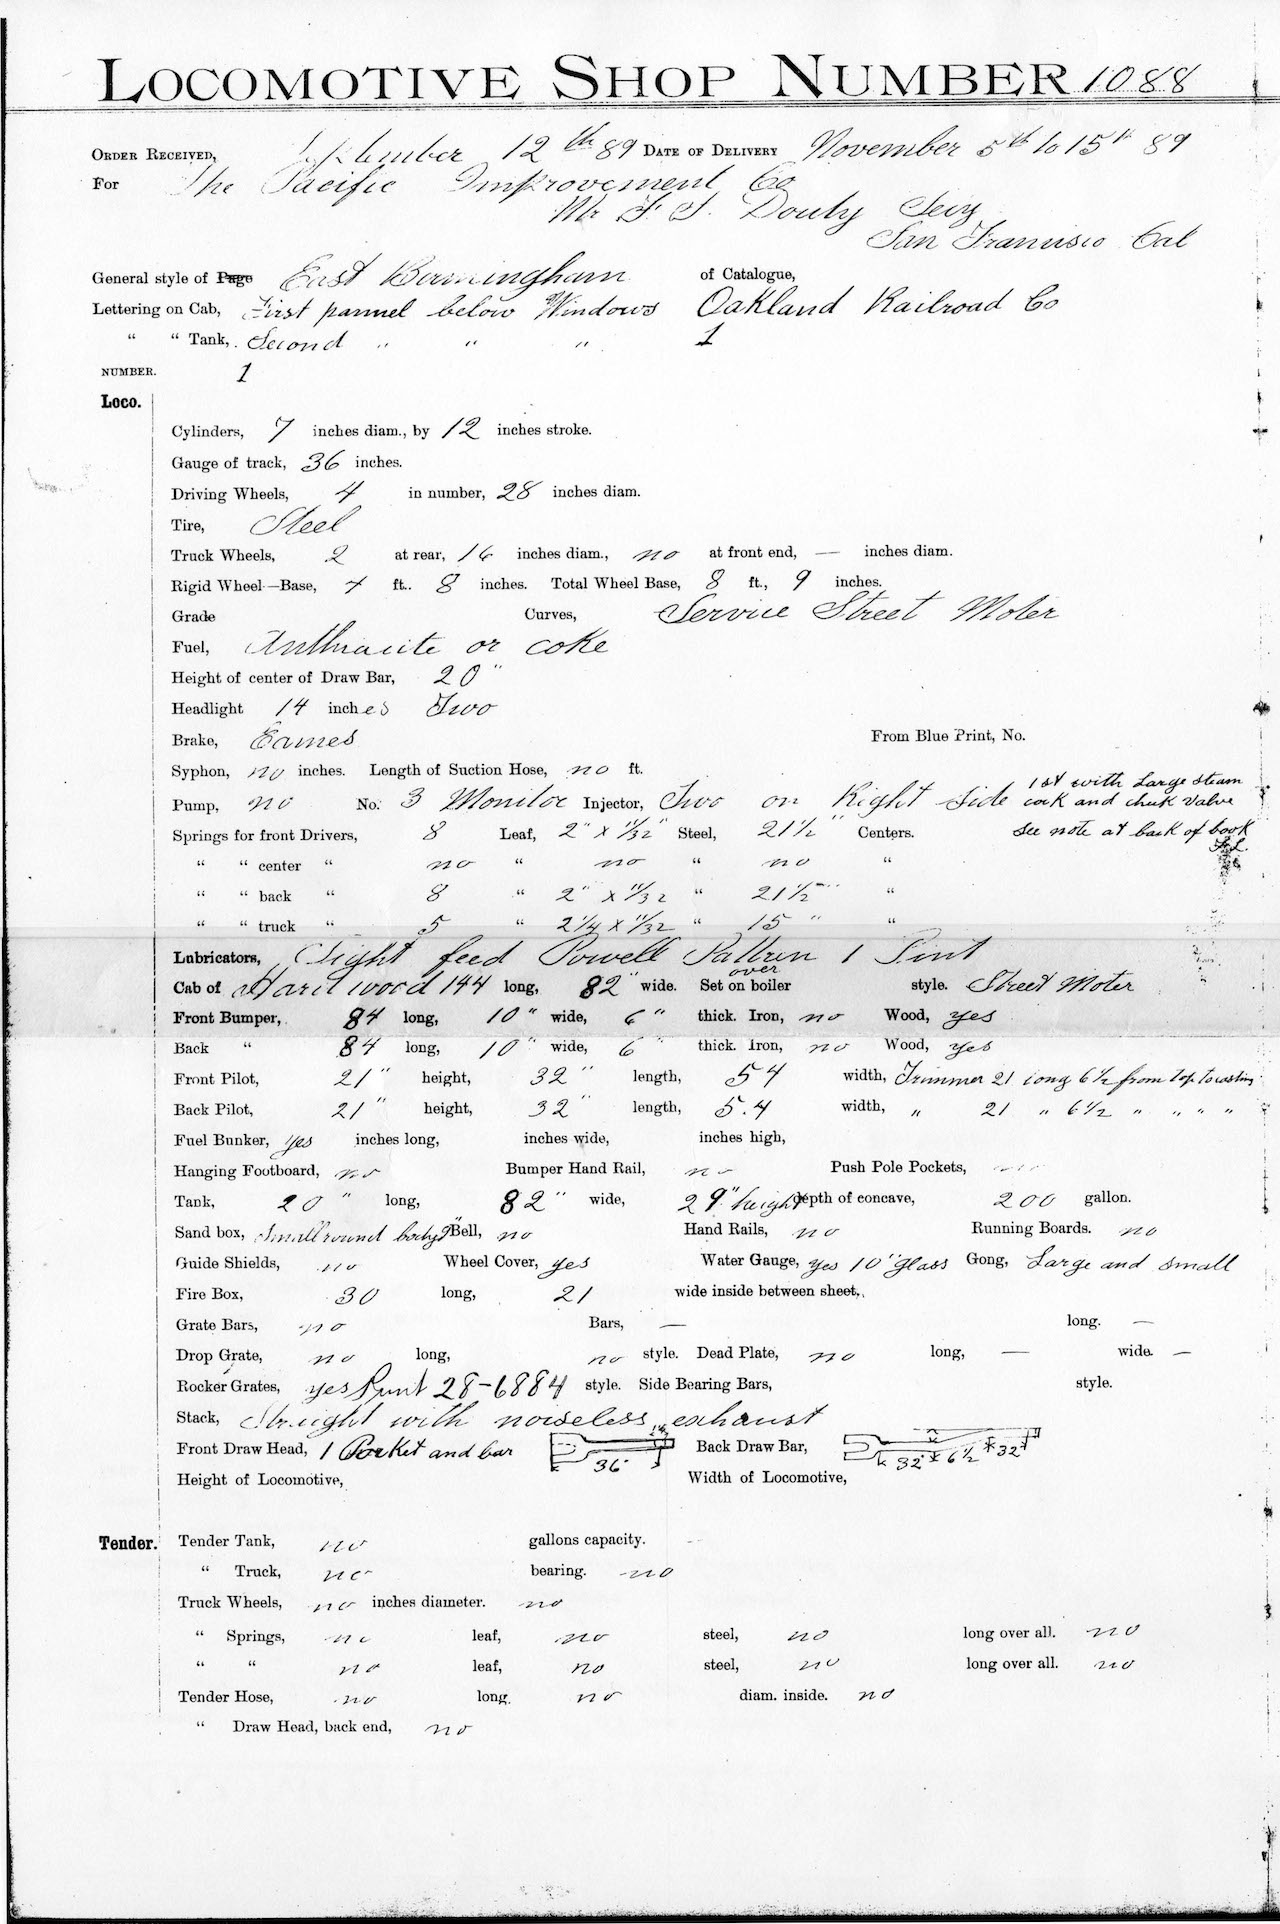 LOCOMOTIVE SHOP NUMBER 1088
ORDER RECEIVED, September 12th 89 DATE OF DELIVERY November 5th to 15th 89
For The Pacific Improvement Co
Mr F. S. Douty Secy
San Francisco Cal
General style of Page East Birmingham of Catalogue,
Lettering on Cab, First pannel below Windows Oakland Railroad Co
“ “ Tank, Second " " " 1
NUMBER. 1
Loco.
Cylinders, 7 inches diam., by 12 inches stroke.
Gauge of track, 36 inches.
Driving Wheels, 4 in number, 28 inches diam.
Tire, Steel
Truck Wheels, 2 at rear, 16 inches diam., no at front end, — inches diam.
Rigid Wheel-Base, 4 ft. 8 inches. Total Wheel Base, 8 ft., 9 inches.
Grade Curves, Service Street Moter
Fuel, Anthracite or coke
Height of center of Draw Bar, 20"
Headlight 14 inches Two
Brake, Eames From Blue Print, No.
Syphon, no inches. Length of Suction Hose, no ft.
1st with Large steam
Pump, no No. 3 Monitor Injector, Two on Right Side cock and check valve
Springs for front Drivers, 8 Leaf, 2" x 11/32" Steel, 21 1/2" Centers. See note at back of book
“ “ center “ no “ no “ no “
“ “ back “ 8 “ 2" x 11/32 “ 21 1/2" “
“ “ truck “ 5 “ 2 1/4 x 11/32 “ 15 " “
Lubricators, Sight feed Powell Pattren 1 Pint
over
Cab of Hard wood 144 long, 82" wide. Set on boiler style. Street Moter
Front Bumper, 84 long, 10" wide, 6" thick. Iron, no Wood, yes
Back “ 84 long, 10" wide, 6" thick. Iron, no Wood, yes
Front Pilot, 21" height, 32" length, 54 width, Trimmer 21 long 6 1/2 from top to casting
Back Pilot, 21" height, 32" length, 5.4 width, " 21 " 6 1/2 " " " "
Fuel Bunker, yes inches long, inches wide, inches high,
Hanging Footboard, no Bumper Hand Rail, no Push Pole Pockets, no
Tank, 20" long, 82" wide, 29" height depth of concave, 200 gallon.
Sand box, Small round body 9" Bell, no Hand Rails, no Running Boards. no
Guide Shields, no Wheel Cover, yes Water Gauge, yes 10" glass Gong, Large and small
Fire Box, 30 long, 21 wide inside between sheet,
Grate Bars, no Bars, — long. —
Drop Grate, no long, no style. Dead Plate, no long, — wide. —
Rocker Grates, yes Print 28-6884 style. Side Bearing Bars, style.
Stack, Straight with noiseless exhaust
Front Draw Head, 1 Pocket and bar 36" Back Draw Bar, 32" 6 1/2 32"
Height of Locomotive, Width of Locomotive,
Tender. Tender Tank, no gallons capacity.
“ Truck, no bearing. no
Truck Wheels, no inches diameter. no
“ Springs, no leaf, no steel, no long over all. no
“ “ no leaf, no steel, no long over all. no
Tender Hose, no long. no diam. inside. no
“ Draw Head, back end, no